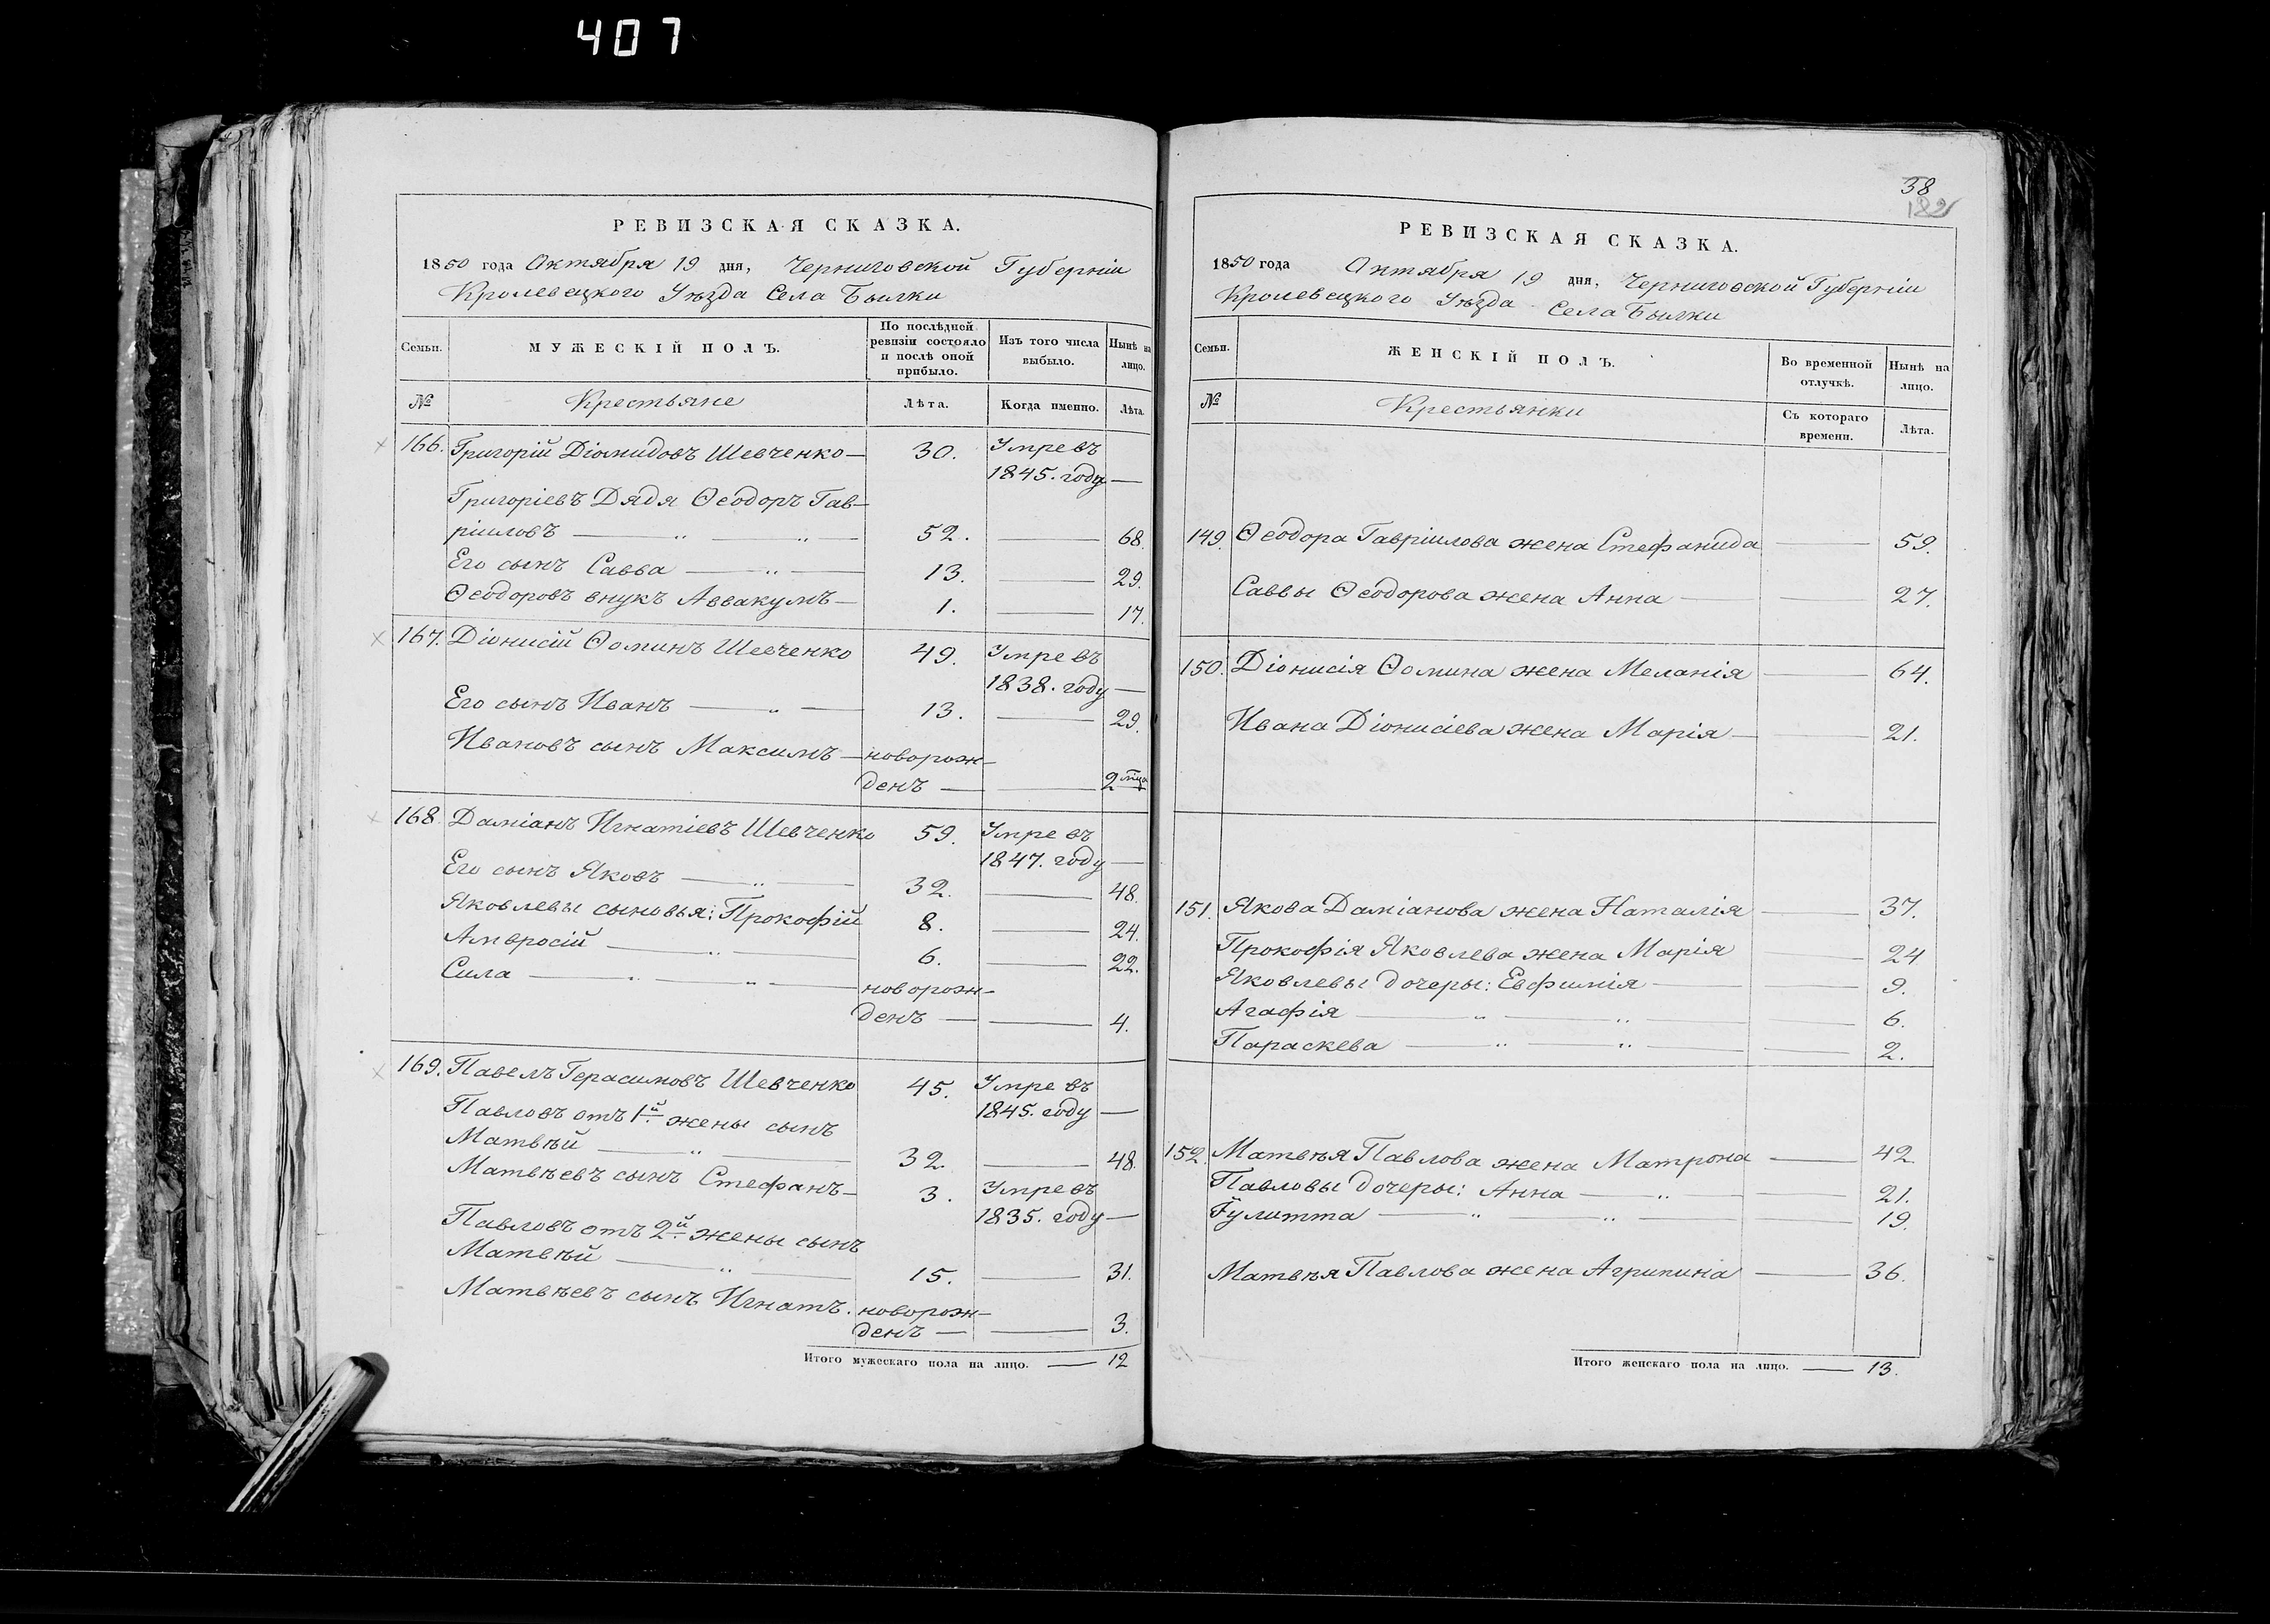 407
РЕВИЗСКАЯ СКАЗКА.
1850 года Октября 19 дня, Черниговской Губерніи
Кролевецкого Уѣзда Села Быки
Семьи. МУЖЕСКІЙ ПОЛЪ. По послѣдней ревизіи состояло и послѣ оной прибыло. Изъ того числа выбыло. Нынѣ на лицо.
№ Крестьяне Лѣта. Когда именно. Лѣта.
166. Григорій Діомидовъ Шевченко — 30. Умре въ
1845. году —
Григоріевъ Дядя Ѳеодоръ Гав-
ріиловъ — " — " — 52. — 68.
Его сынъ Савва — " — 13. — 29.
Ѳеодоровъ внукъ Аввакумъ — 1. — 17.
167. Діонисій Ѳоминъ Шевченко 49. Умре въ
1838. году —
Его сынъ Иванъ — " — 13. — 29.
Ивановъ сынъ Максимъ — новорож-
денъ — — 2 мѣца
168. Даміанъ Игнатіевъ Шевченко 59. Умре въ
1847. году —
Его сынъ Яковъ — " — 32. — 48.
Яковлевы сыновья: Прокофій 8. — 24.
Амвросій — " — 6. — 22.
Сила — " — " — новорож-
денъ — — 4.
169. Павелъ Герасимовъ Шевченко 45. Умре въ
1845. году —
Павловъ отъ 1й жены сынъ
Матвѣй — " — 32. — 48.
Матвѣевъ сынъ Стефанъ — 3. Умре въ
1835. году —
Павловъ отъ 2й жены сынъ
Матвѣй — " — 15. — 31.
Матвѣевъ сынъ Игнатъ. новорож-
денъ — — 3.
Итого мужескаго пола на лицо. — 12
38
182
РЕВИЗСКАЯ СКАЗКА.
1850 года Октября 19 дня, Черниговской Губерніи
Кролевецкого Уѣзда Села Быки
Семьи. ЖЕНСКІЙ ПОЛЪ. Во временной отлучкѣ. Нынѣ на лицо.
№ Крестьянки Съ котораго времени. Лѣта.
149. Ѳеодора Гавріилова жена Стефанида — 59.
Саввы Ѳеодорова жена Анна — — 27.
150. Діонисія Ѳомина жена Меланія — 64.
Ивана Діонисіева жена Марія — — 21.
151. Якова Даміанова жена Наталія — 37.
Прокофія Яковлева жена Марія — 24
Яковлевы дочеры: Евфимія — — 9.
Агафія — " — " — — 6.
Параскева — " — " — — 2.
152. Матвѣя Павлова жена Матрона — 42.
Павловы дочеры: Анна — " — — 21.
Іулитта — " — " — — 19.
Матвѣя Павлова жена Агрипина — 36.
Итого женскаго пола на лицо. — 13.